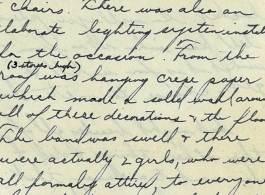 chairs. There was also an
laborate leghting system instal
for the occasion. From the
(3 stories high)
roof was hanging crepe paper
which made a solid wall (arou
all of these decorations & the floo
The band was swell & there
were actually 2 girls, who were
all formally attired, to everyone